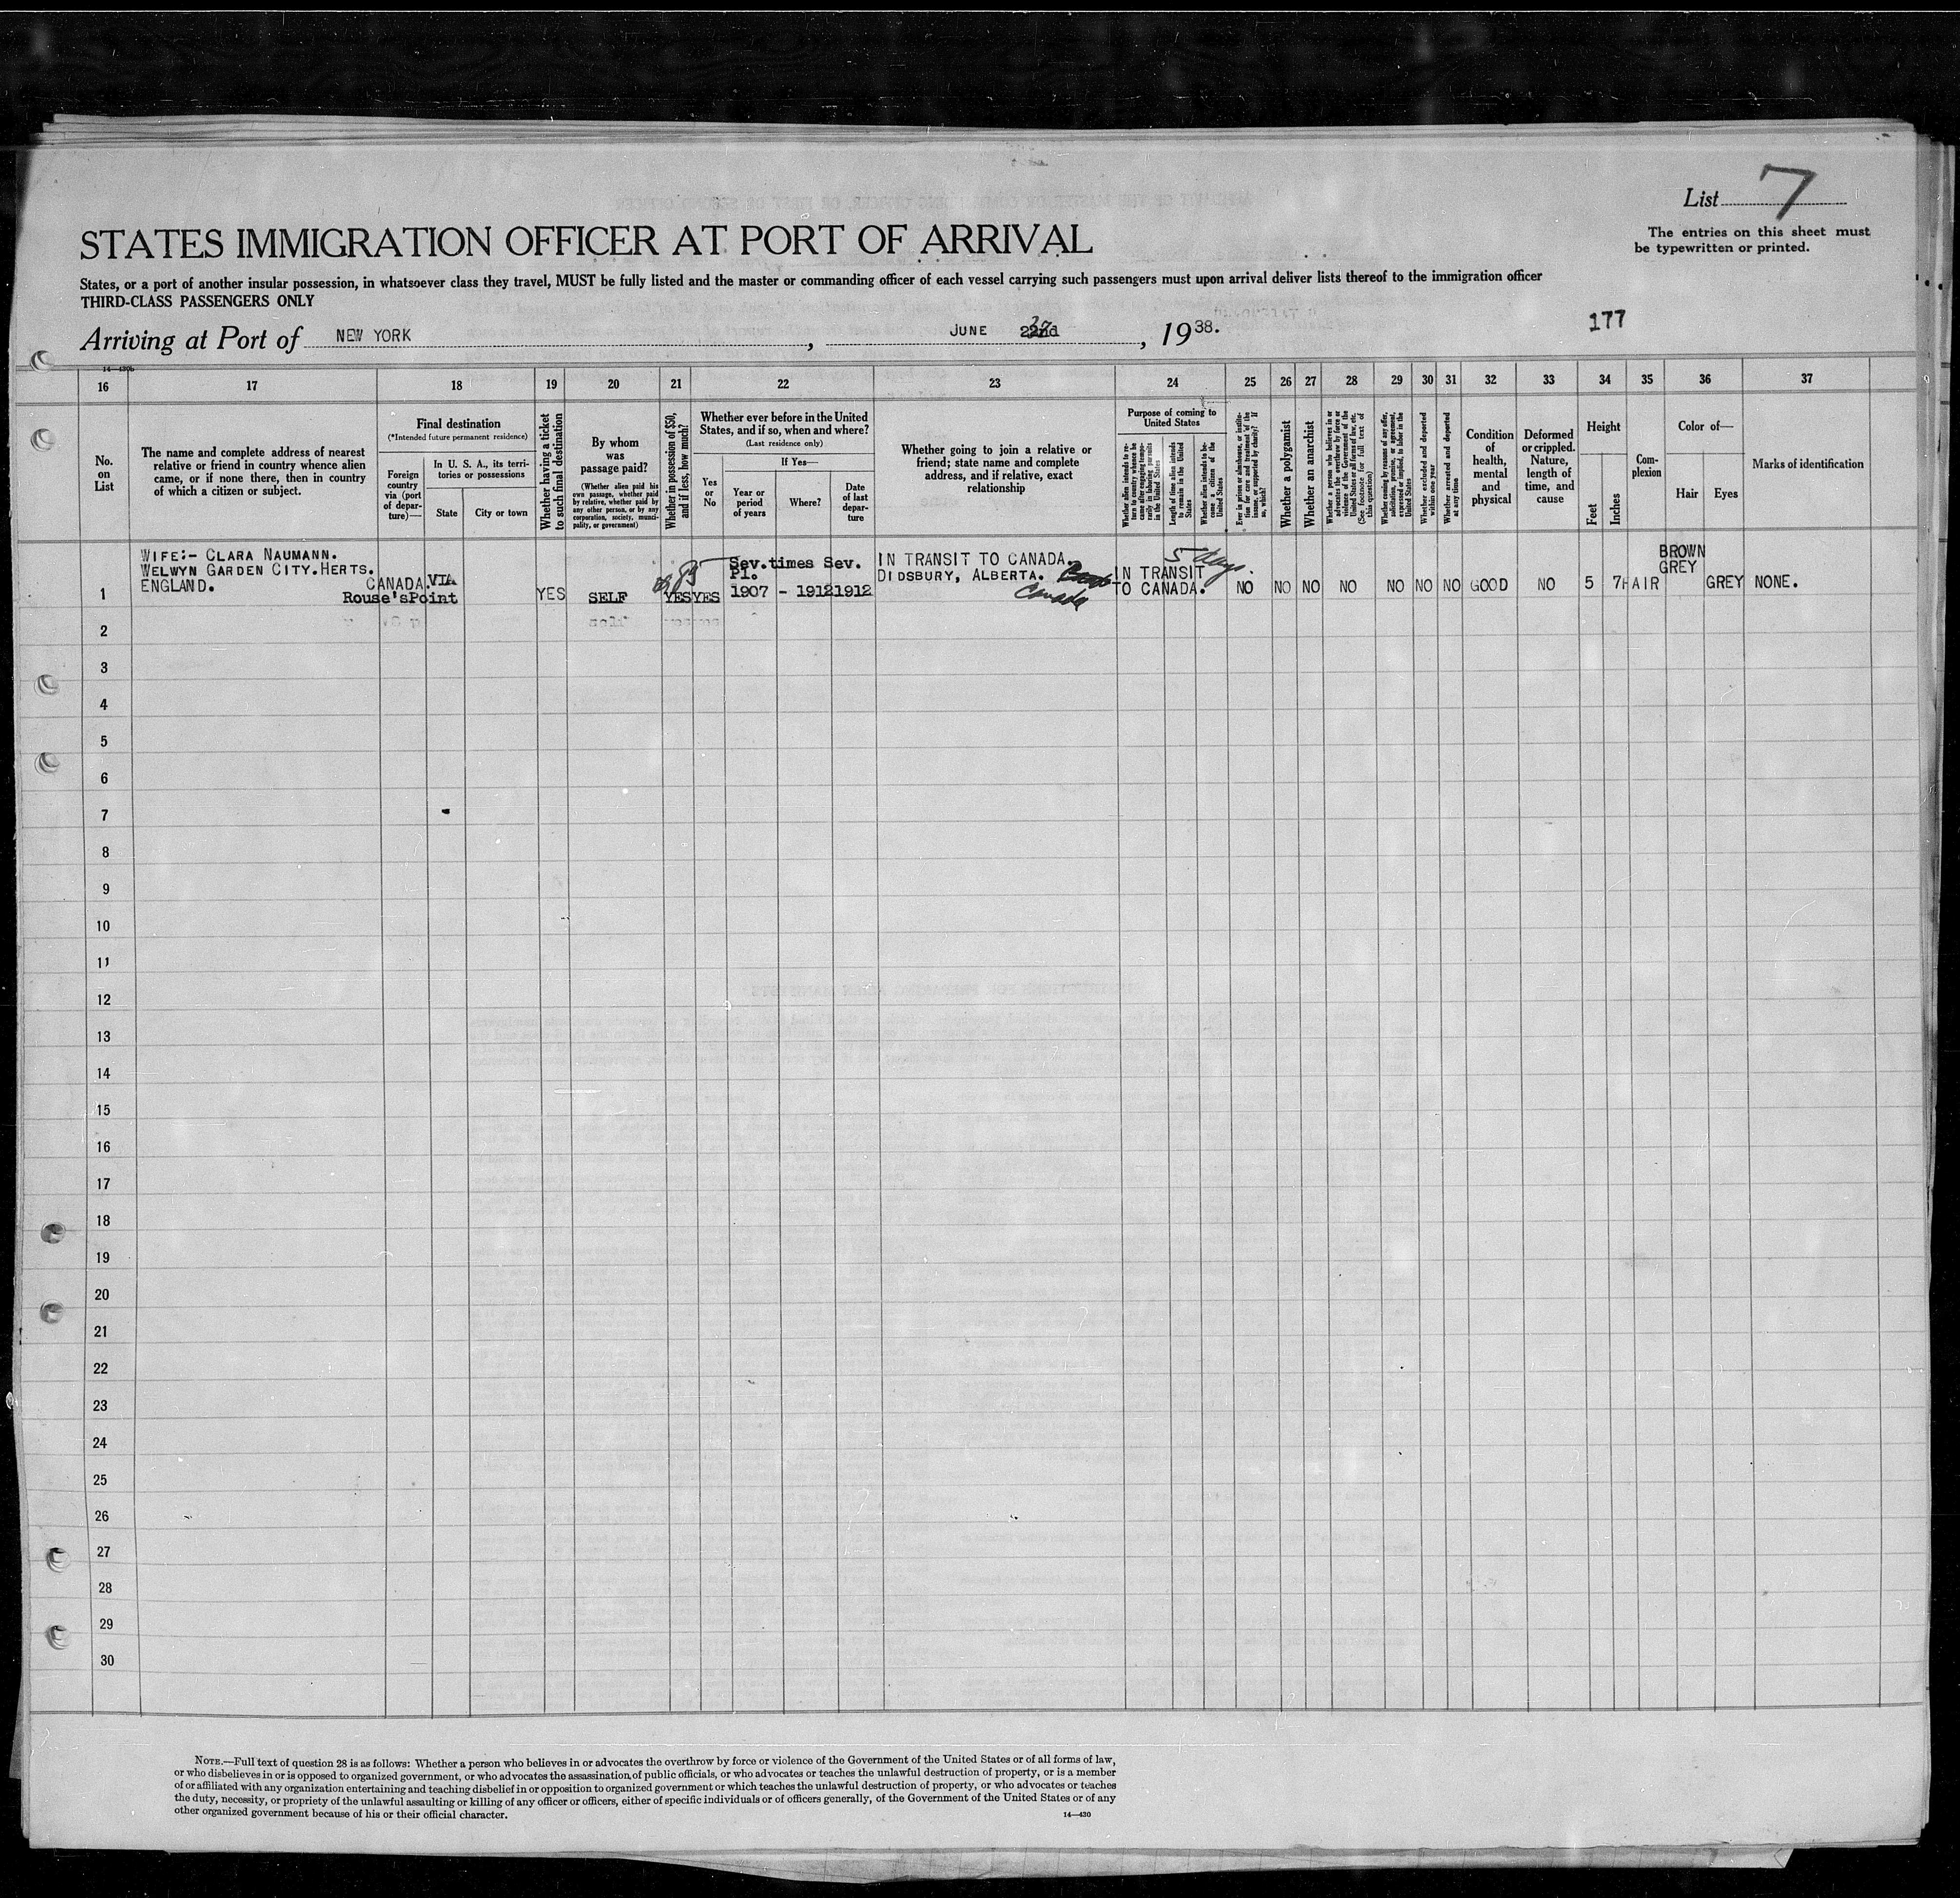 List 7
STATES IMMIGRATION OFFICER AT PORT OF ARRIVAL
The entries on this sheet must
be typewritten or printed.
States, or a port of another insular possession, in whatsoever class they travel, MUST be fully listed and the master or commanding officer of each vessel carrying such passengers must upon arrival deliver lists thereof to the immigration officer
THIRD-CLASS PASSENGERS ONLY
Arriving at Port of NEW YORK, JUNE 22nd, 1938.
177
14—430b
16 17 18 19 20 21 22 23 24 25 26 27 28 29 30 31 32 33 34 35 36 37
No.
on
List
The name and complete address of nearest
relative or friend in country whence alien
came, or if none there, then in country
of which a citizen or subject.
Final destination
(*Intended future permanent residence)
Foreign
country
via (port
of depar-
ture)—
In U. S. A., its terri-
tories or possessions
State
City or town
Whether having a ticket
to such final destination
By whom
was
passage paid?
(Whether alien paid his
own passage, whether paid
by relative, whether paid by
any other person, or by any
corporation, society, munici-
pality, or government)
Whether in possession of $50,
and if less, how much?
Whether ever before in the United
States, and if so, when and where?
(Last residence only)
Yes
or
No
If Yes—
Year or
period
of years
Where?
Date
of last
depar-
ture
Whether going to join a relative or
friend; state name and complete
address, and if relative, exact
relationship
Purpose of coming to
United States
Whether alien intends to re-
turn to country whence he
came after engaging tempo-
rarily in laboring pursuits
in the United States
Length of time alien intends
to remain in the United
States
Whether alien intends to be-
come a citizen of the
United States
Ever in prison or almshouse, or institu-
tion for care and treatment of the
insane, or supported by charity? If
so, which?
Whether a polygamist
Whether an anarchist
Whether a person who believes in or
advocates the overthrow by force or
violence of the Government of the
United States or all forms of law, etc.
(See footnote for full text of
this question)
Whether coming by reason of any offer,
solicitation, promise, or agreement,
expressed or implied, to labor in the
United States
Whether excluded and deported
within one year
Whether arrested and deported
at any time
Condition
of
health,
mental
and
physical
Deformed
or crippled.
Nature,
length of
time, and
cause
Height
Feet
Inches
Com-
plexion
Color of—
Hair
Eyes
Marks of identification
WIFE:- CLARA NAUMANN.
WELWYN GARDEN CITY.HERTS.
ENGLAND.
CANADA.VIA
Rouse'sPoint
YES
SELF
YES
YES
Sev.times Sev.
Pl.
1907 - 1912 1912
IN TRANSIT TO CANADA.
DIDSBURY, ALBERTA.
Canada
5 days.
IN TRANSIT
TO CANADA.
NO NO NO NO NO NO NO GOOD NO 5 7 HAIR
BROWN
GREY
GREY NONE.
1
2
3
4
5
6
7
8
9
10
11
12
13
14
15
16
17
18
19
20
21
22
23
24
25
26
27
28
29
30
NOTE.—Full text of question 28 is as follows: Whether a person who believes in or advocates the overthrow by force or violence of the Government of the United States or of all forms of law,
or who disbelieves in or is opposed to organized government, or who advocates the assassination of public officials, or who advocates or teaches the unlawful destruction of property, or is a member
of or affiliated with any organization entertaining and teaching disbelief in or opposition to organized government or which teaches the unlawful destruction of property, or who advocates or teaches
the duty, necessity, or propriety of the unlawful assaulting or killing of any officer or officers, either of specific individuals or of officers generally, of the Government of the United States or of any
other organized government because of his or their official character.
14—430